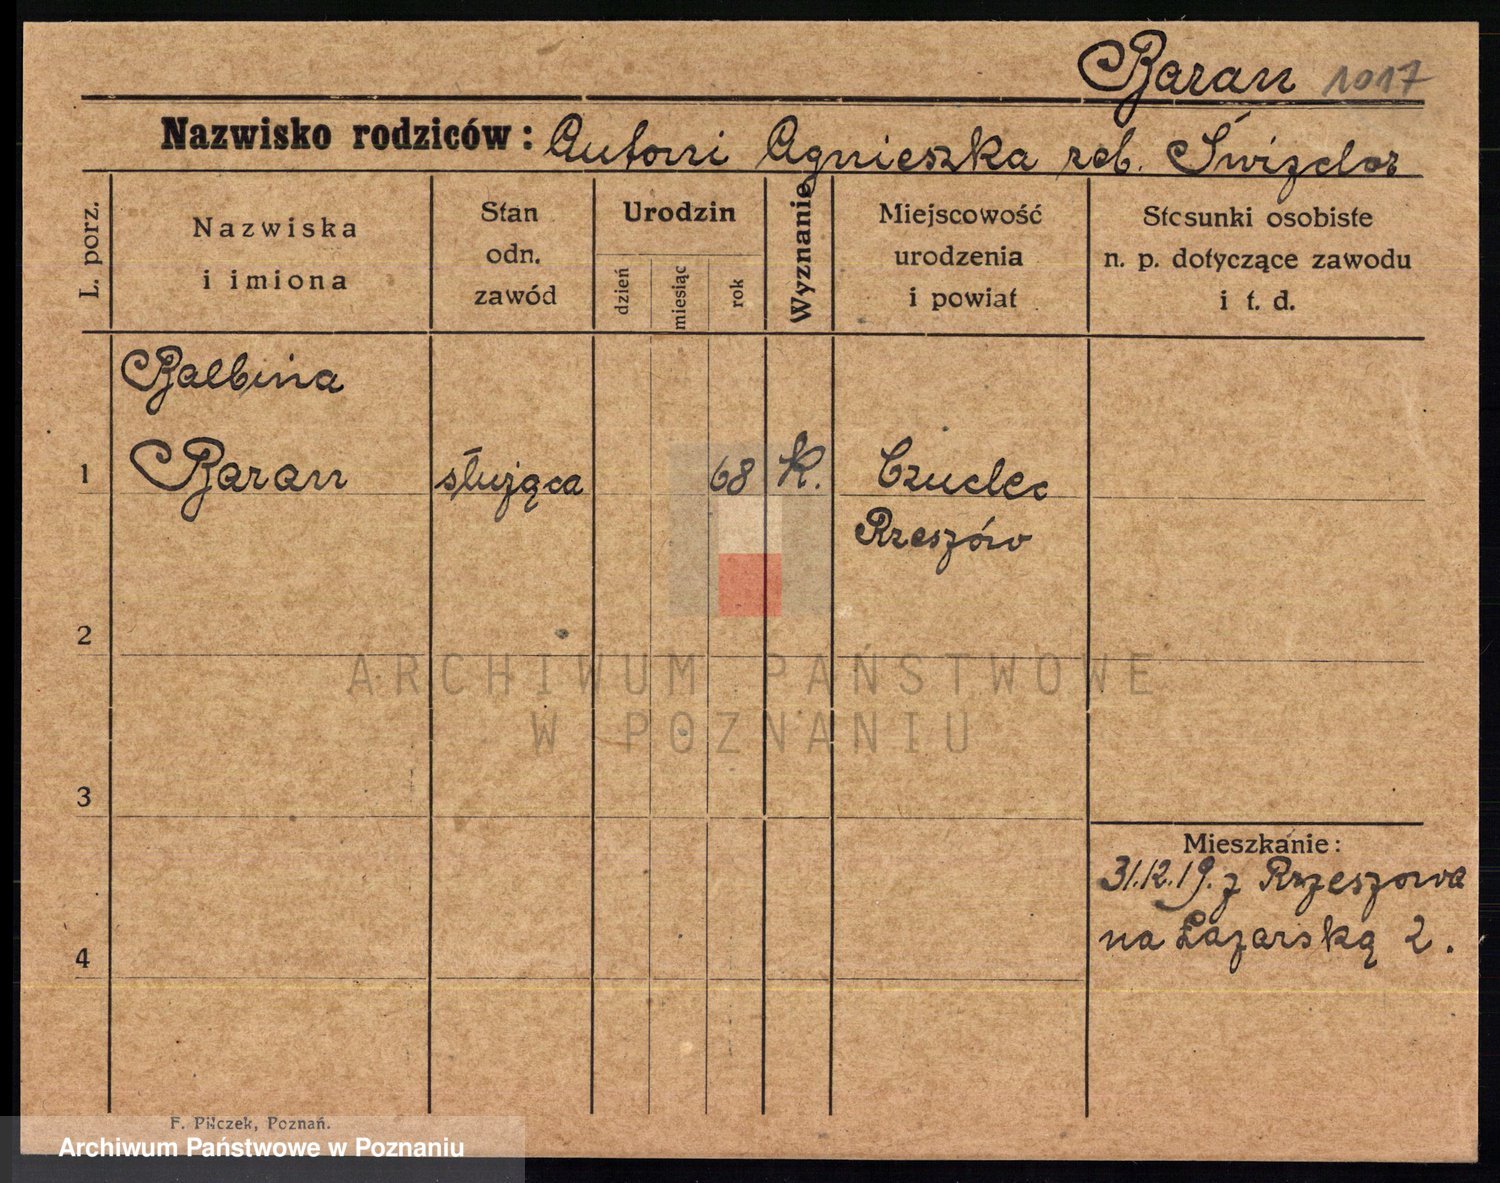 Baran 1017
Nazwisko rodziców: Antoni Agnieszka
L. porz.
Nazwiska
i imiona
Stan
odn.
zawód
Urodzin
dzień
miesiąc
rok
Wyznanie
Miejscowość
urodzenia
i powiat
Stosunki osobiste
n. p. dotyczące zawodu
i t. d.
Balbina
1 Baran służąca 68 K. Czudec
Rzeszów
2
3
Mieszkanie:
31.12.19. z Rzeszowa
na Łazarską 2.
4
ARCHIWUM PAŃSTWOWE
W POZNANIU
F. Pilczek, Poznań.
Archiwum Państwowe w Poznaniu